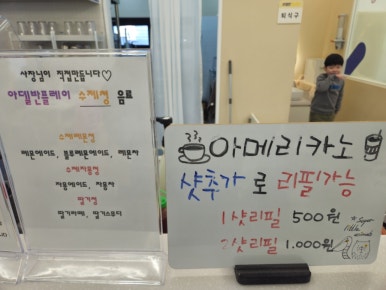 퇴식구
사장님이 직접만듭니다♡
아델반플레이 수제청 음료
수제레몬청
레몬에이드, 블루레몬에이드, 레몬차
수제자몽청
자몽에이드, 자몽차
딸기청
딸기라떼, 딸기스무디
아메리카노
샷추가로 리필가능
1샷리필 500원
2샷리필 1.000원
Super
little